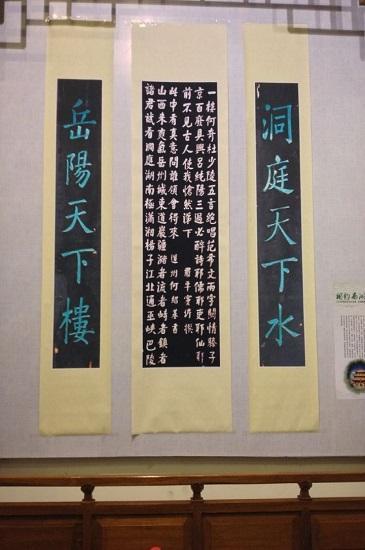 洞庭天下水
一樓何奇杜少陵五言絕唱范希文兩字關情滕子
京百廢具興呂純陽三過必醉詩耶儒耶吏耶仙耶
前不見古人使我愴然涕下 君平竇垿撰
此中有真意問誰領會得來 道州何紹基書
山西來爽氣岳州城東道巖疆瀦者流者峙者鎮者
諸君試看洞庭湖南極瀟湘揚子江北通巫峽巴陵
岳陽天下樓